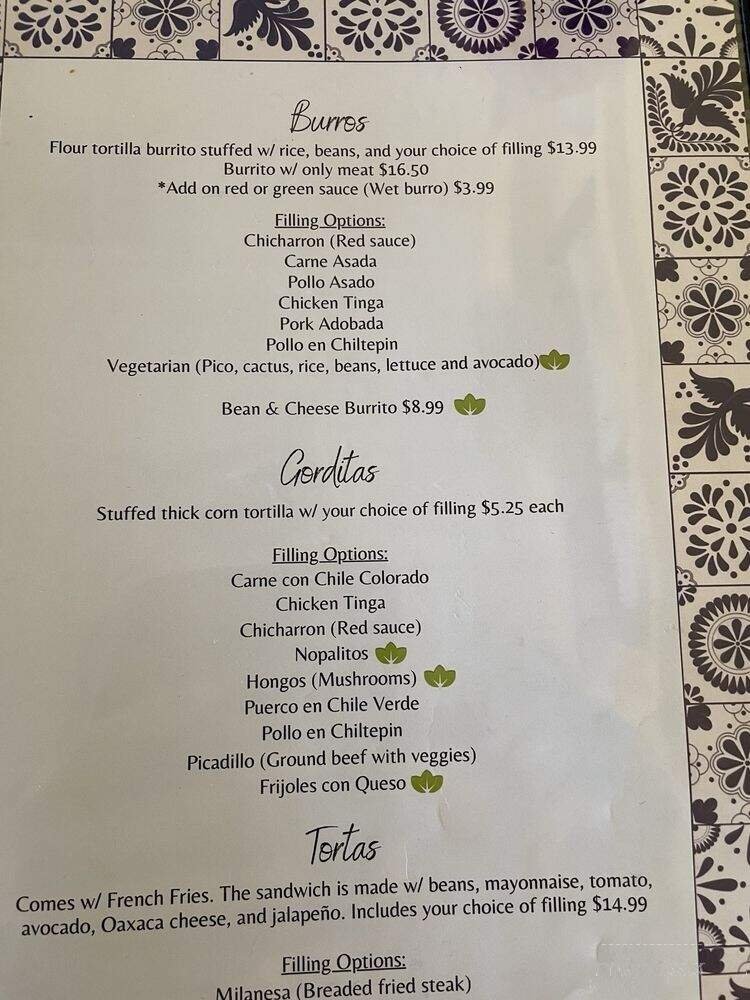 Burros
Flour tortilla burrito stuffed w/ rice, beans, and your choice of filling $13.99
Burrito w/ only meat $16.50
*Add on red or green sauce (Wet burro) $3.99
Filling Options:
Chicharron (Red sauce)
Carne Asada
Pollo Asado
Chicken Tinga
Pork Adobada
Pollo en Chiltepin
Vegetarian (Pico, cactus, rice, beans, lettuce and avocado)
Bean & Cheese Burrito $8.99
Gorditas
Stuffed thick corn tortilla w/ your choice of filling $5.25 each
Filling Options:
Carne con Chile Colorado
Chicken Tinga
Chicharron (Red sauce)
Nopalitos
Hongos (Mushrooms)
Puerco en Chile Verde
Pollo en Chiltepin
Picadillo (Ground beef with veggies)
Frijoles con Queso
Tortas
Comes w/ French Fries. The sandwich is made w/ beans, mayonnaise, tomato,
avocado, Oaxaca cheese, and jalapeño. Includes your choice of filling $14.99
Filling Options:
Milanesa (Breaded fried steak)